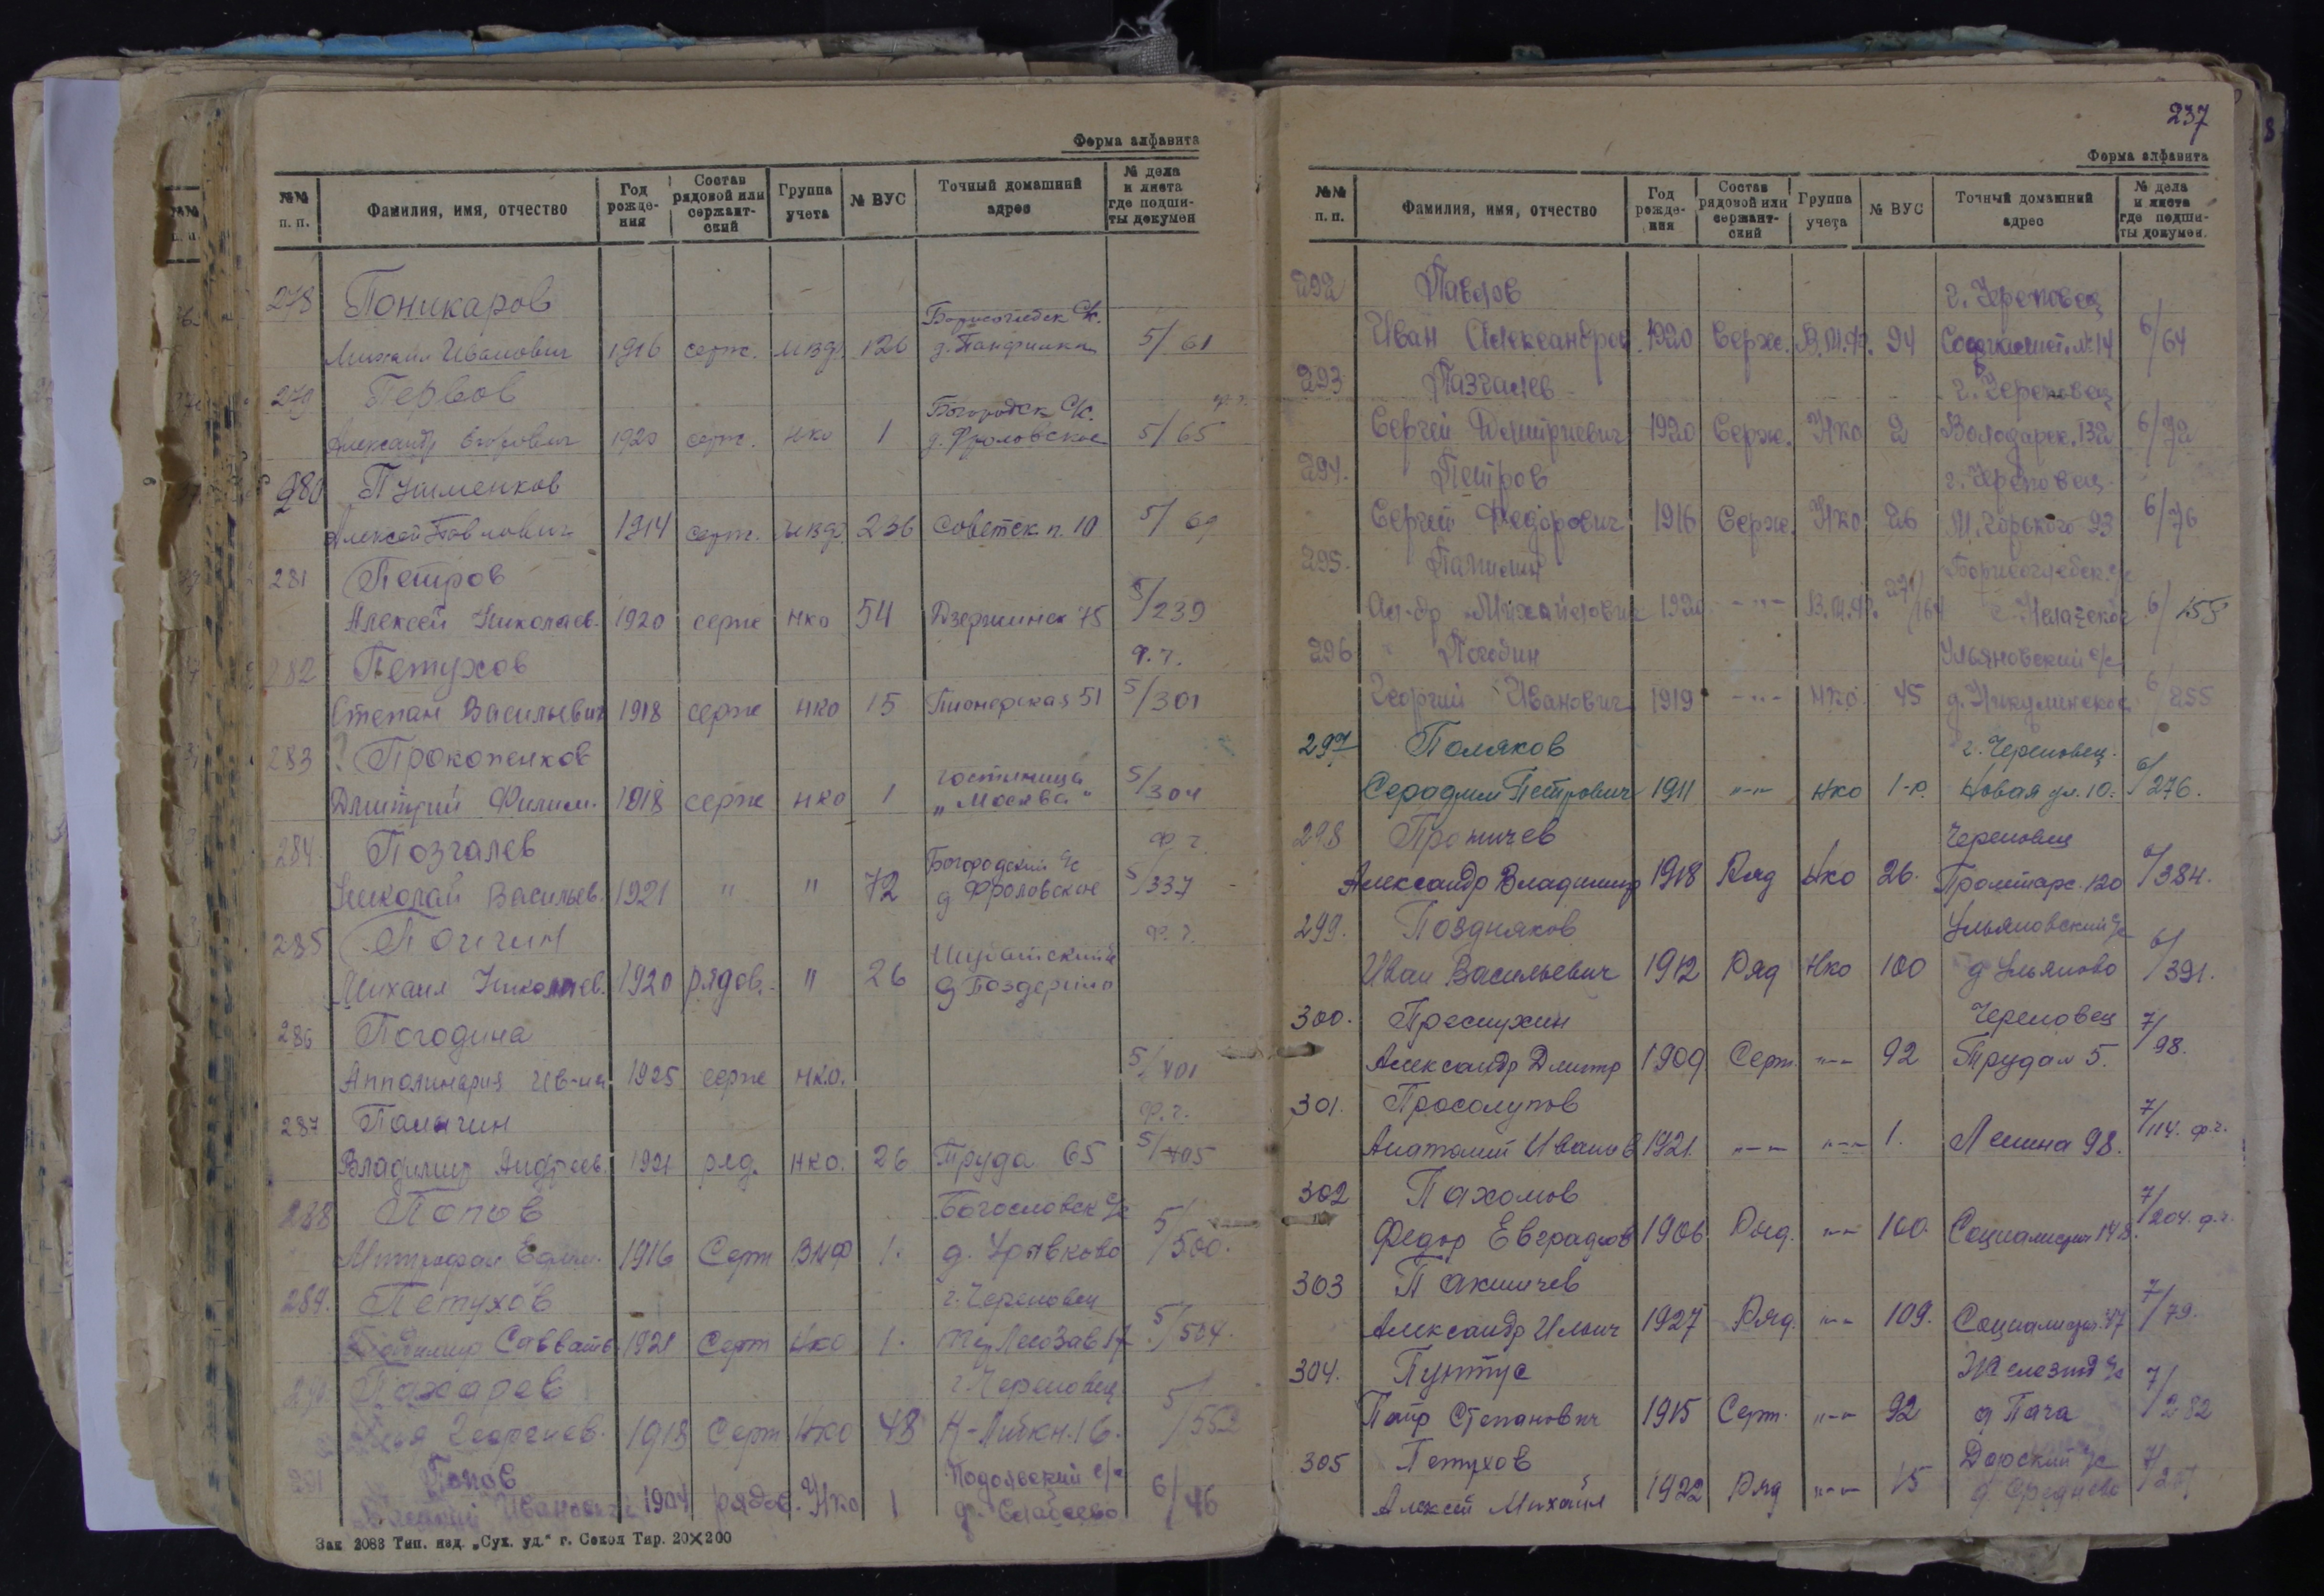 Форма алфавита
№№ п. п. Фамилия, имя, отчество Год рождения Состав рядовой или сержантский Группа учета № ВУС Точный домашний адрес № дела и листа где подшиты докумен
278 Поникаров Борисоглебск С/с.
Михаил Иванович 1916 серж. МВД 126 д. Панфилка 5/61
279 Первов Богородск С/с.
Александр 1920 серж. НКО 1 д. Фроловское 5/65
280 Путименков
Алексей Павлович 1914 серж. МВД 236 Советск п. 10 5/69
281 Петров
Алексей Николаев. 1920 серж НКО 54 Дзержинск 75 5/239
282 Петухов ф.г.
Степан Васильевич 1918 серж НКО 15 Пионерская 51 5/301
283 ? Прокопенков гостиница
Дмитрий Филим. 1918 серж НКО 1 „Москва" 5/304
284. Позгалев Богородский с/с ф г.
Николай Васильев. 1921 " " 72 д Фроловское 5/337
285 ф.г.
Михаил Николаев. 1920 рядов. " 26 д
286 Погодина
Апполинария Ив-на 1925 серж НК.О. 5/401
287 Паничин ф.г.
Владимир Андреев. 1921 ряд. НКО. 26 Труда 65 5/405
288 Попов Богословск с/с
Митрофан 1916 Серж ВМФ 1. д. Урывково 5/500.
289. Петухов г. Череповец
Савват 1921 Серж НКО 1. ЛесоЗав 17 5/504.
290 Пахарев г. Череповец
Георгиев. 1918 Серж НКО 48 К-Либкн. 16. 5/552
291 Попов с/с
Иванович 1904 рядов. НКО 1 6/46
Зак 2083 Тип. изд. „Сух. уд." г. Сокол Тир. 20×200
237
Форма алфавита
№№ п. п. Фамилия, имя, отчество Год рождения Состав рядовой или сержантский Группа учета № ВУС Точный домашний адрес № дела и листа где подшиты докумен.
292 Павлов г. Череповец
Иван Александров. 1920 Серж. В.М.Ф. 94 № 14 6/64
293 Пазгалев г. Череповец
Сергей Дмитриевич 1920 Серж. НКО 2 Володарск. 132 6/72
294. Петров г. Череповец
Сергей Федорович 1916 Серж. НКО 26 М. Горького 93 6/76
295. Борисоглебск. с/с
Ал-др Михайлович 1920 -"- В.М.Ф. 6/155
296 Погодин Ульяновский с/с
Георгий Иванович 1919 -"- НКО 45 д. Никулинское 6/255
297 Поляков г. Череповец.
Серафим Петрович 1911 -"- НКО 1-р. Новая ул. 10. 6/276.
298 Протичев Череповец
Александр Владимир 1918 Ряд НКО 26. Пролетарс. 120 6/384.
299. Поздняков Ульяновский с/с
Иван Васильевич 1912 Ряд НКО 100 д Ульяново 6/391.
300. Преснухин Череповец
Александр Дмитр 1909 Серж. -"- 92 Труда 5. 7/98.
301. Просолупов
Анатолий Иванов 1921. -"- -"- 1. Ленина 98. 7/114. ф.г.
302 Пахомов
Федор Евграфов 1906 Ряд. -"- 100. 7/204. ф.г.
303 Пакшичев
Александр Ильич 1927 Ряд. -"- 109. Социалист. 47 7/79.
304. Пунтус с/с
Петр Степанович 1915 Серж. -"- 92 д Пача 7/282
305 Петухов Дорский с/с
Алексей Михайл 1922 Ряд -"- 15